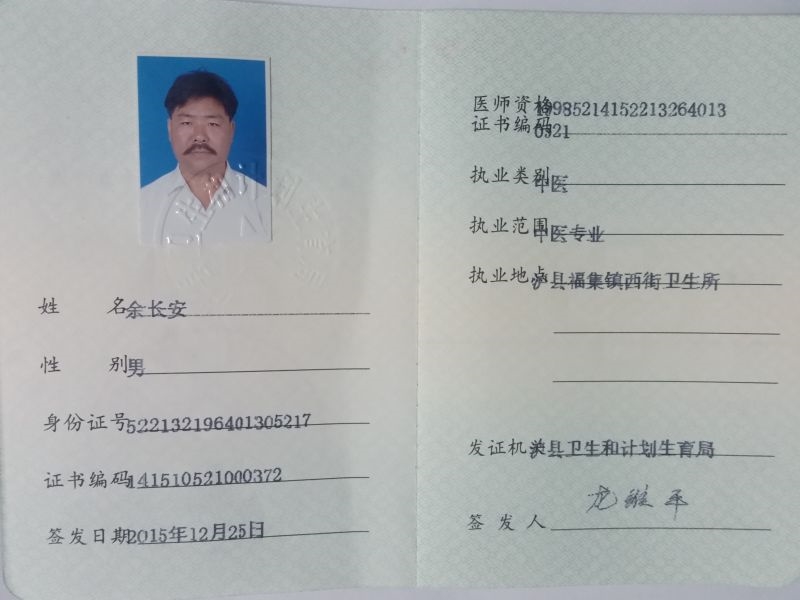 姓 名 余长安
性 别 男
身份证号 522132196401305217
证书编码 141510521000372
签发日期 2015年12月25日
医师资格 199852141522132640130321
证书编码
执业类别 中医
执业范围 中医专业
执业地点 泸县福集镇西街卫生所
发证机关 泸县卫生和计划生育局
签发人